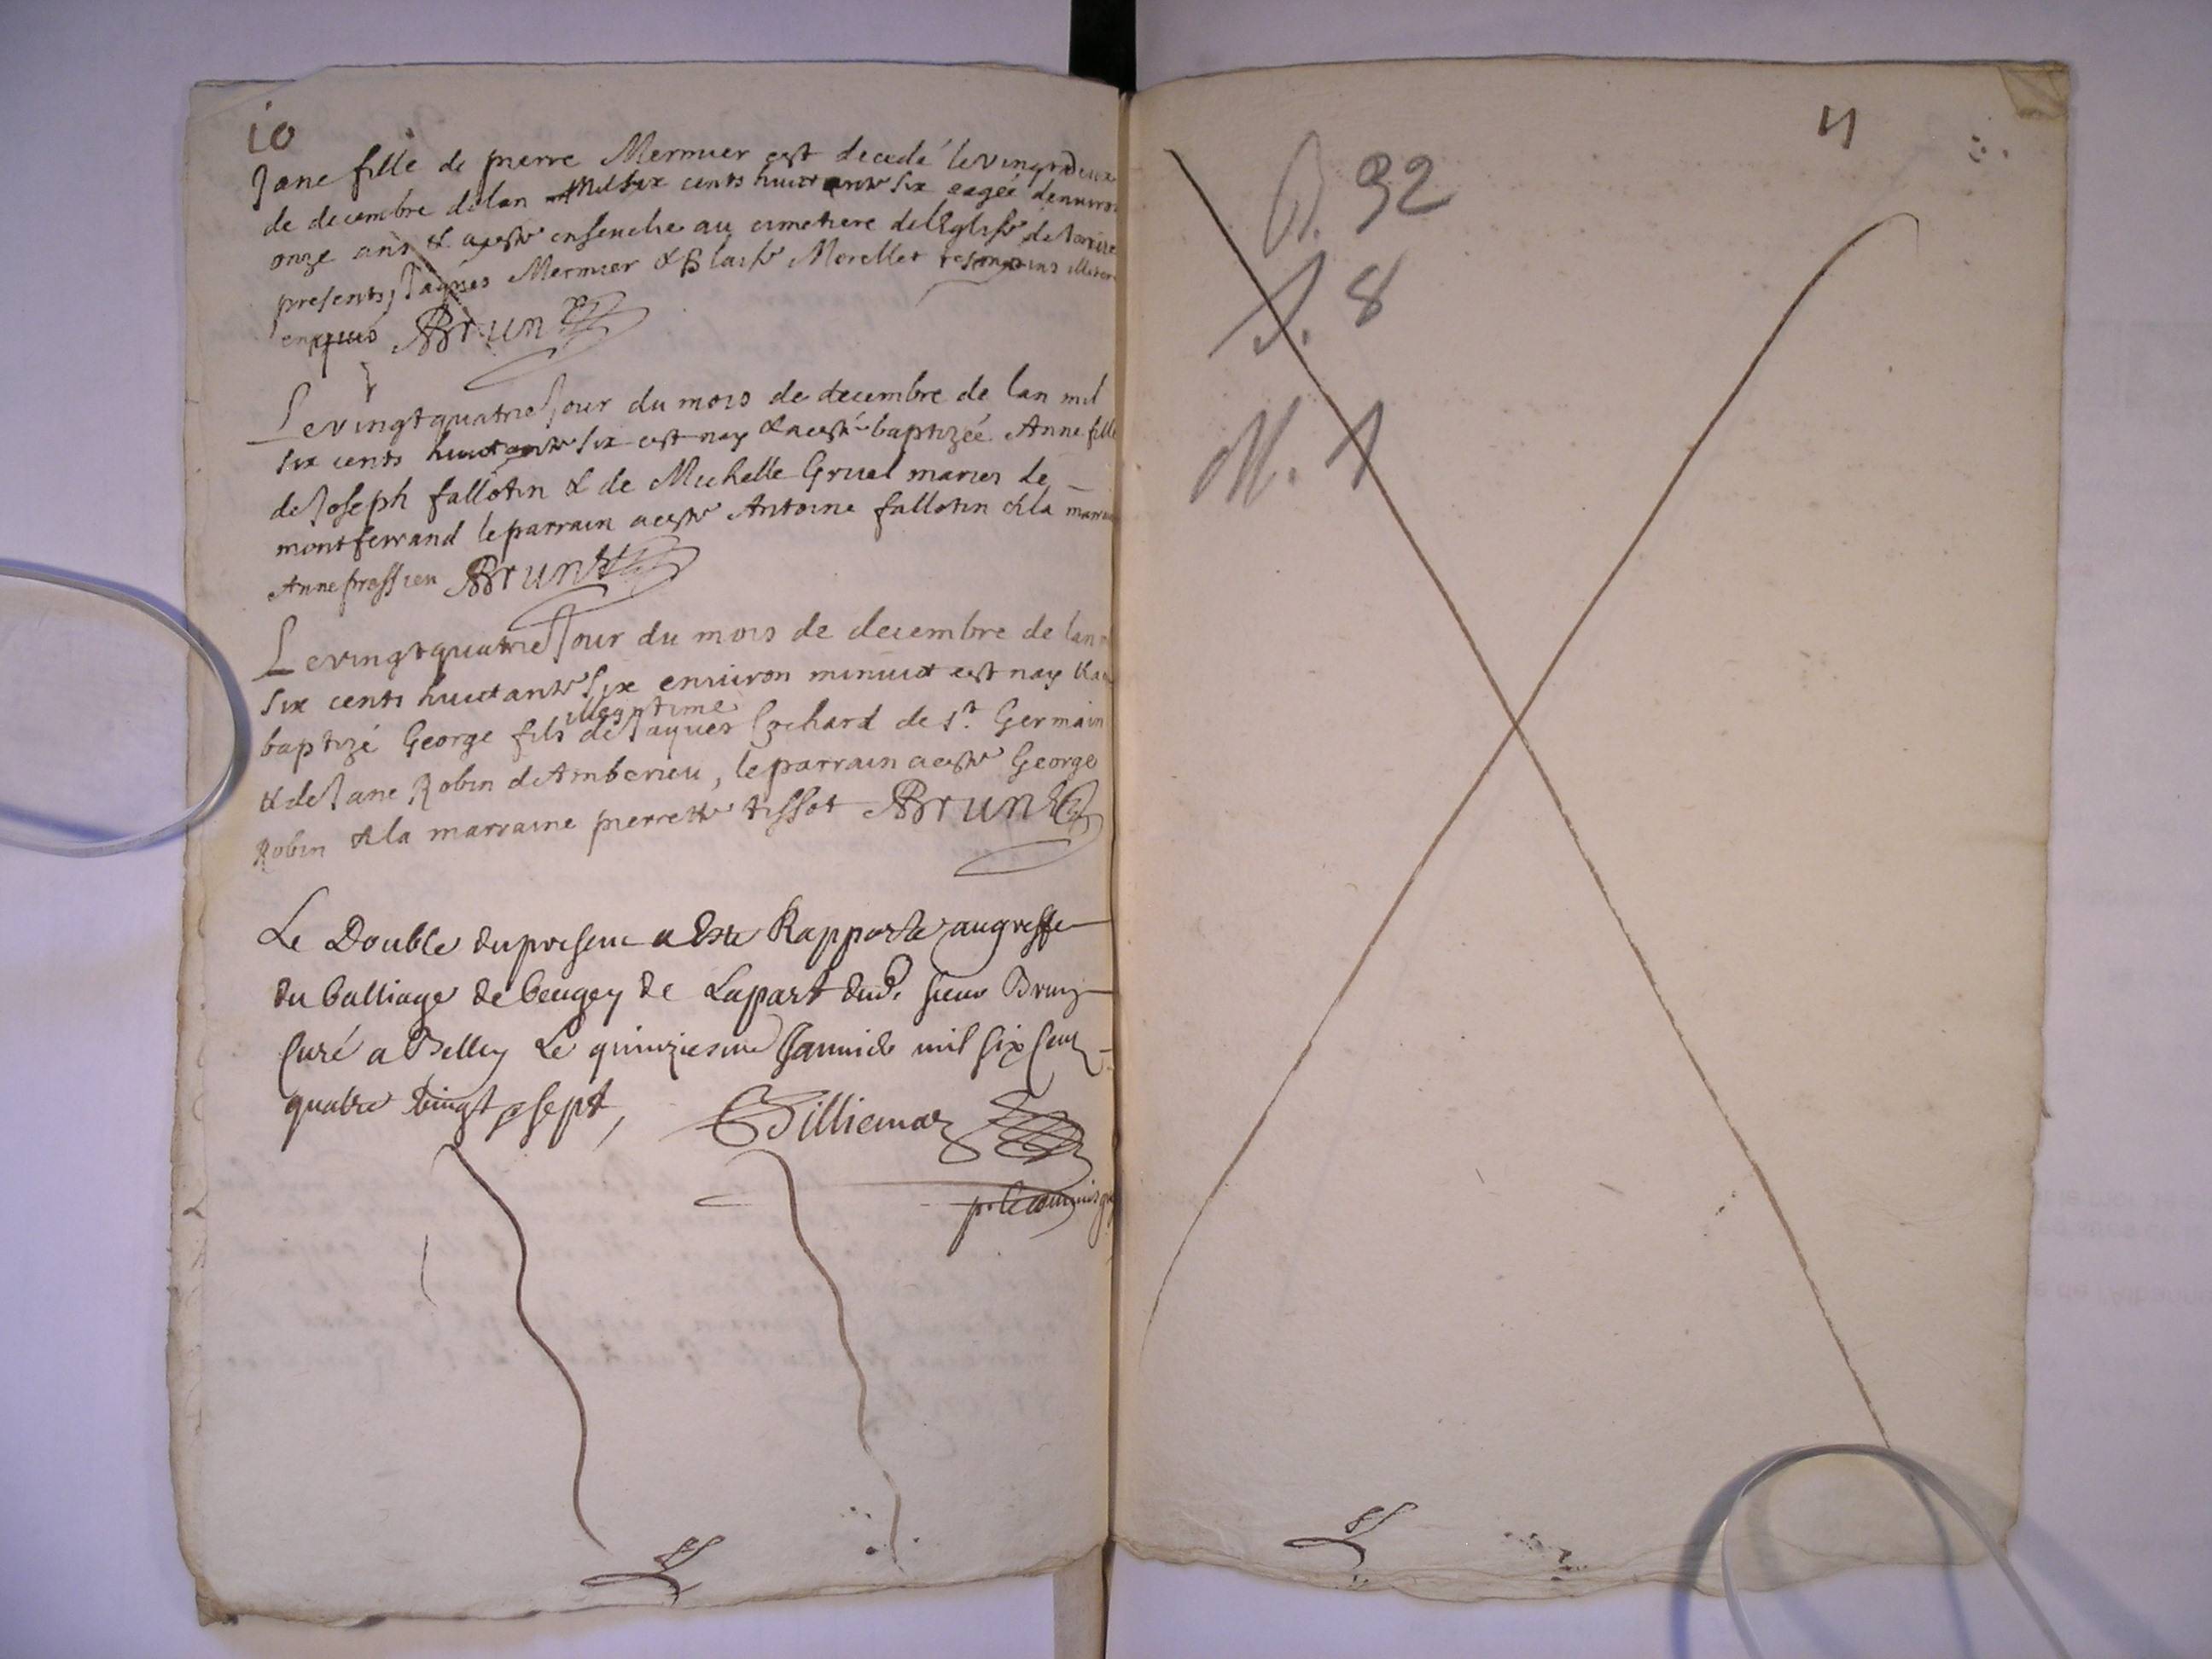 10
Jane fille de pierre Mermier est decedé le vingtdeux
de decembre de lan mil six cents huictante six aagée denuiron
onze ans & a esté enseuelie au cimetiere de l'Eglise de
presents Jaques Mermier & Blaise Morellet tesmoins
enquis Brun
Le vingtquatrie Jour du mois de decembre de lan mil
six cents huictante six est nay & a esté baptizée Anne fille
de Joseph fallotin & de Michelle Gruel maries de
montferrand le parrain a esté Antoine fallotin & la
Anne Brun
Le vingtquatrie Jour du mois de decembre de lan
six cents huictante six enuiron minuict est nay &
illegitime
baptizé George fils de Jaques Cochard de st. Germain
& de Jane Robin d'Amberieu, le parrain a esté George
Robin & la marraine pierrette tissot Brun
Le Double du present a Esté Rapporté au greffe
du balliage de beugey de La part dud. sieur Brun
Curé a Belley Le quinziesme Januier mil six cent
quatre vingt sept,
p. le commis
11
B. 32
S. 8
M. 1